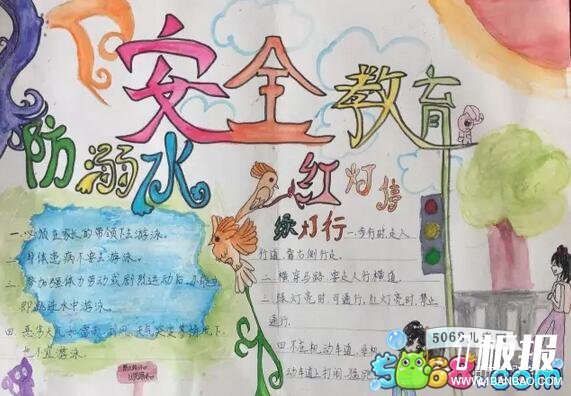 安全教育
防溺水
一.必须在家长的带领下去游泳。
二.身体患病不要去游泳。
三.参加强体力劳动或剧烈运动后,不能立
即跳进水中游泳。
四.恶劣天气如雷雨、刮风、天气突变等情况下,
也不宜游泳。
红灯停
绿灯行
一.步行时走人
行道,靠右侧行走。
二.横穿马路,要走人行横道
三.绿灯亮时,可通行,红灯亮时,禁止
通行.
四.不在机动车道、非机
动车道上打闹,
5068儿童
5068.com
板报
WWW.1BANBAO.COM